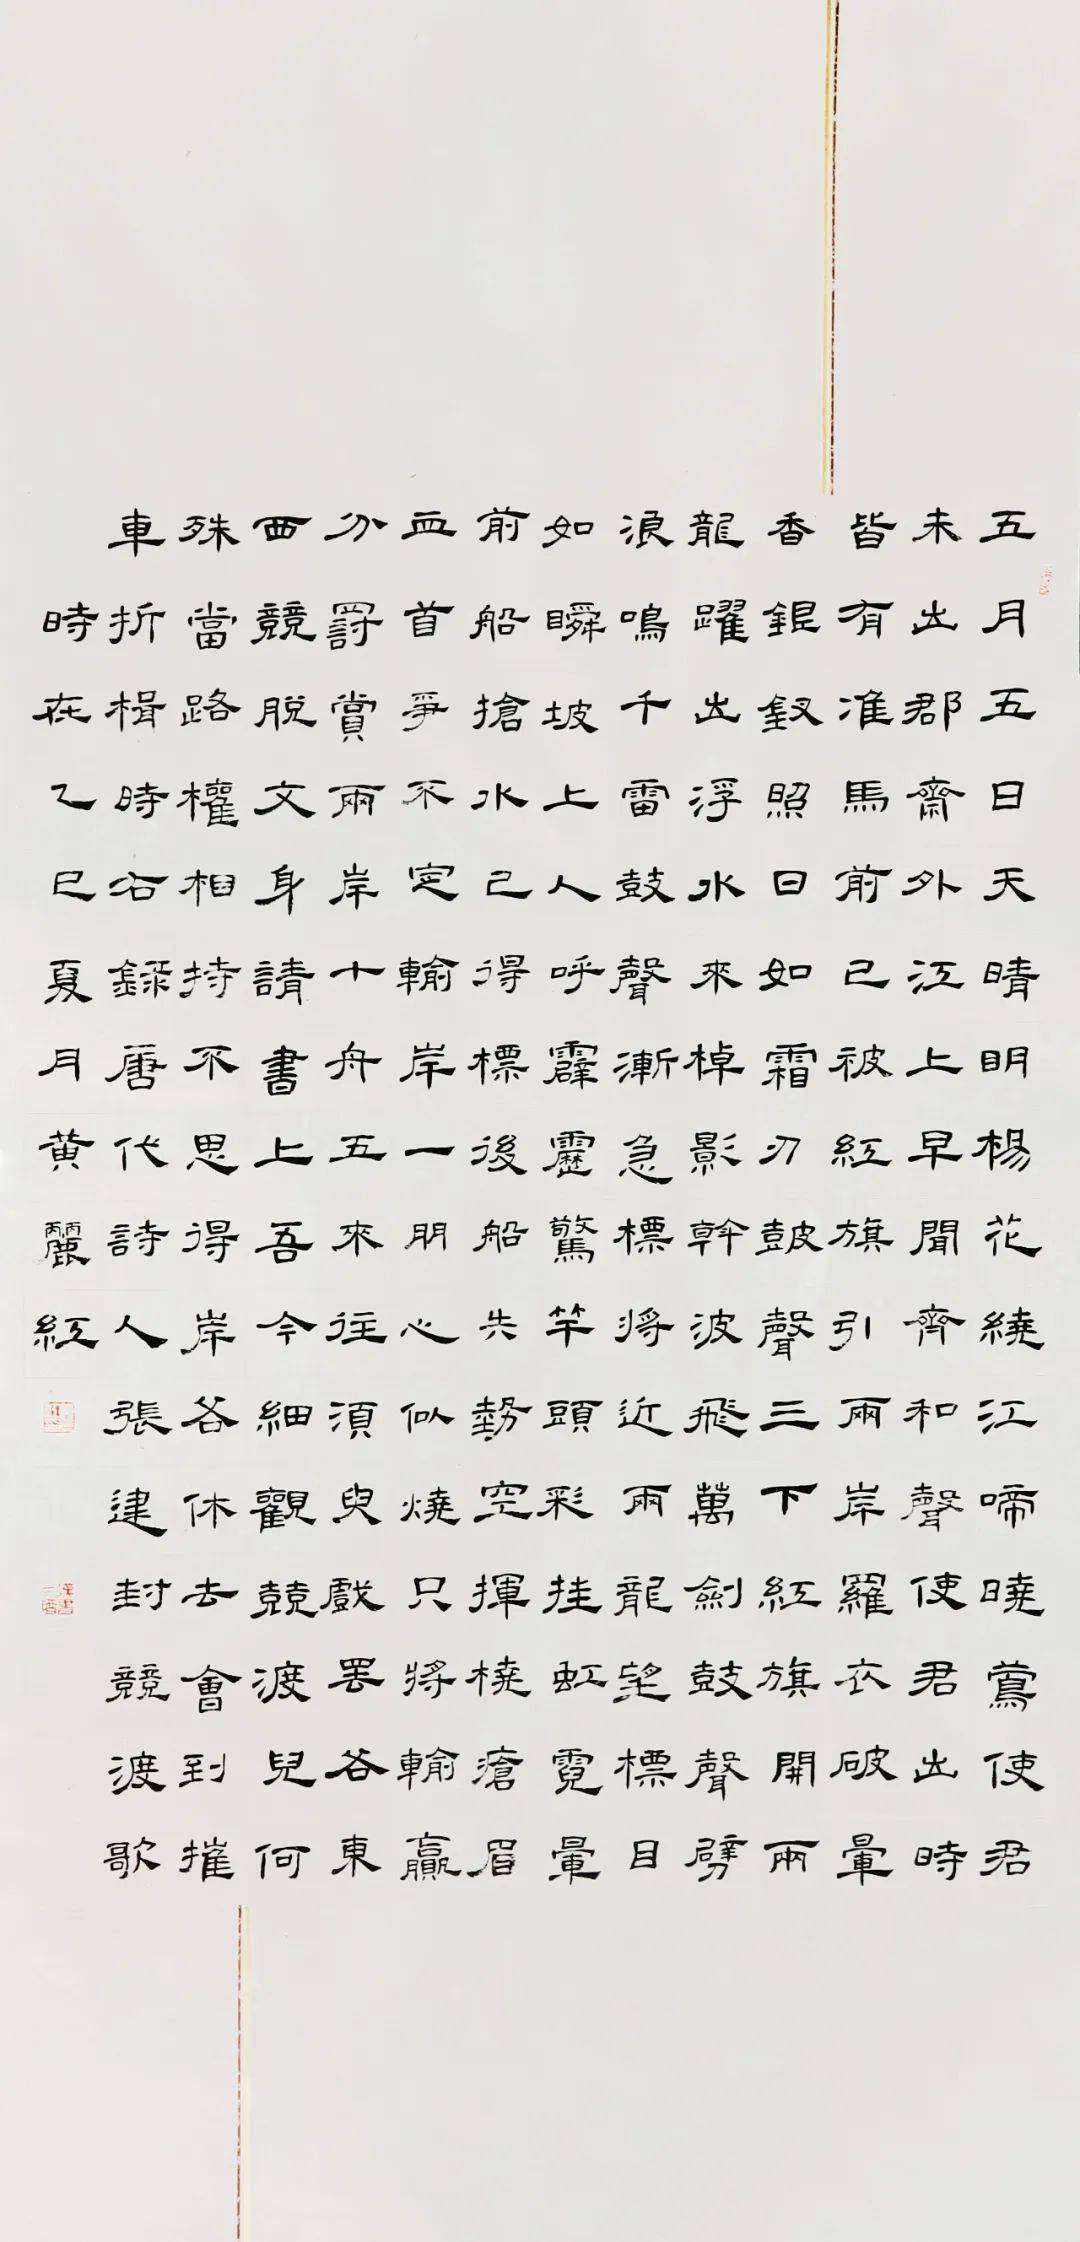 五月五日天晴明楊花繞江啼曉鶯使君
未出郡齋外江上早聞齊和聲使君出時
皆有准馬前已被紅旗引兩岸羅衣破暈
香銀釵照日如霜刃鼓聲三下紅旗開兩
龍躍出浮水來棹影幹波飛萬劍鼓聲劈
浪鳴千雷鼓聲漸急標將近兩龍望標目
如瞬坡上人呼霹靂驚竿頭彩挂虹霓暈
前船搶水已得標後船失勢空揮橈瘡眉
血首爭不定輸岸一朋心似燒只將輸贏
分罰賞兩岸十舟五來往須臾戲罷各東
西競脫文身請書上吾今細觀競渡兒何
殊當路權相持不思得岸各休去會到摧
車折楫時右錄唐代詩人張建封競渡歌
時在乙巳夏月黄麗紅